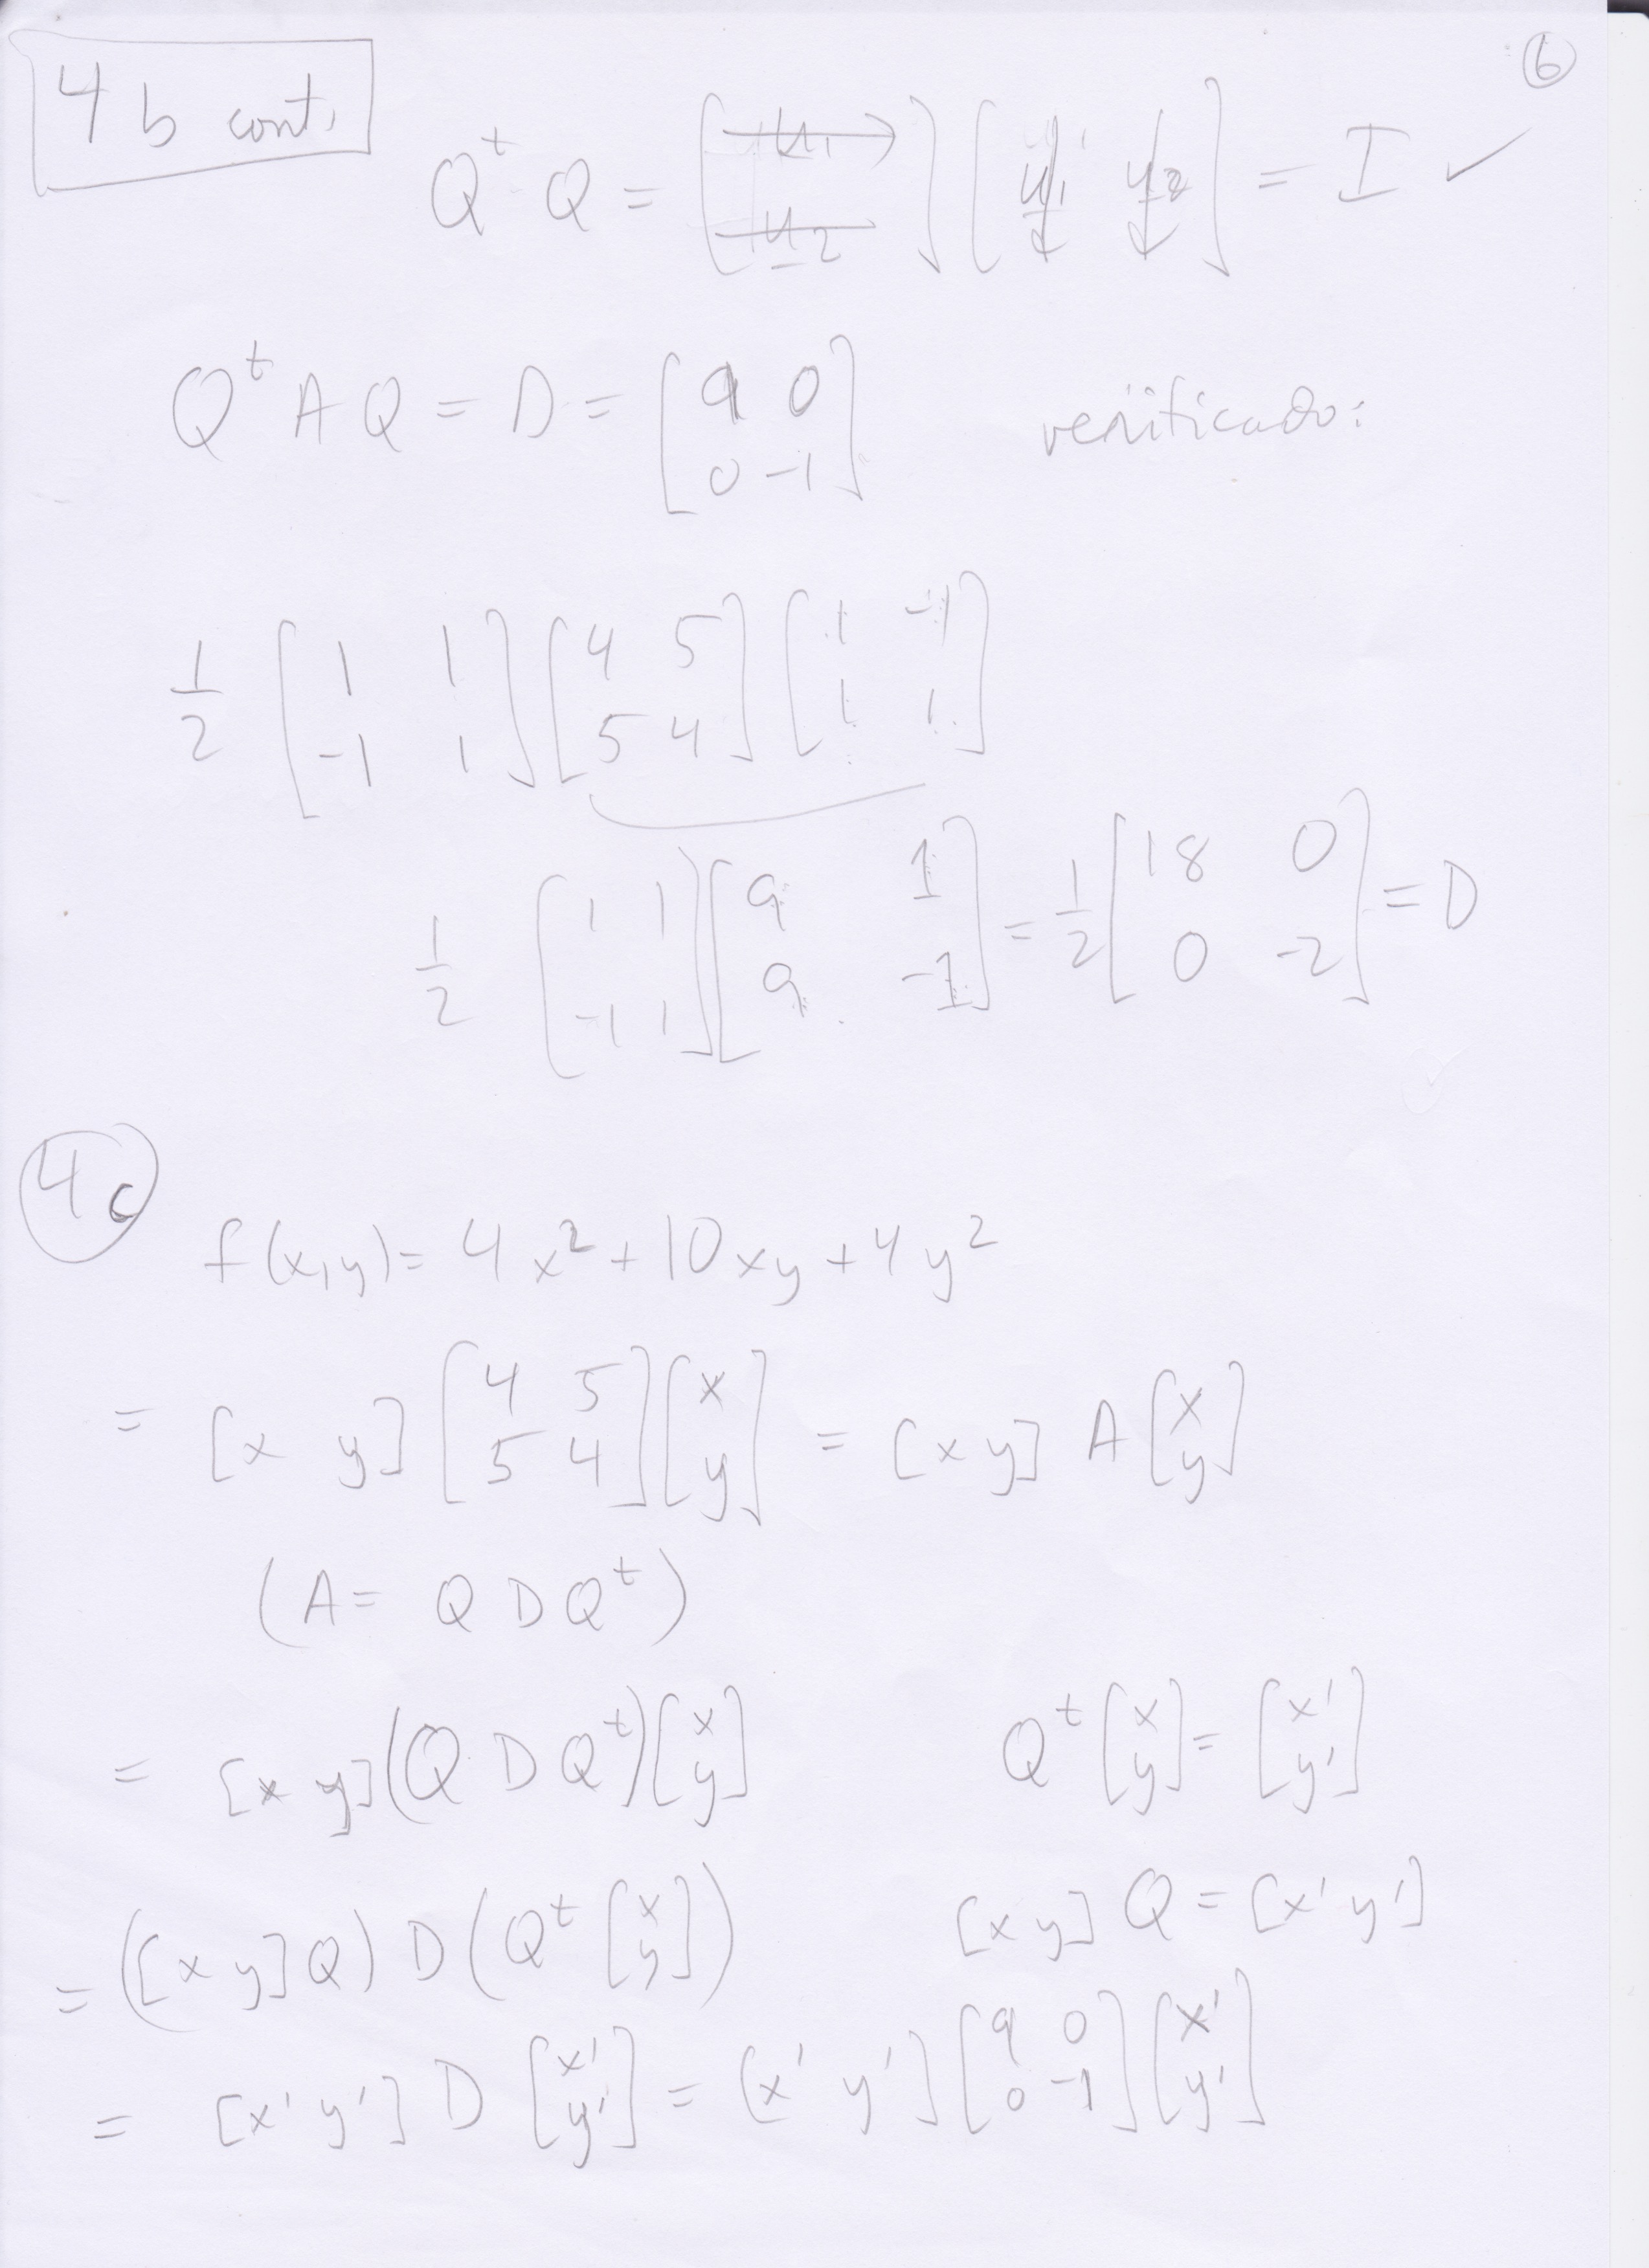 6
4 b cont.
Qᵗ Q = [u₁ u₂] [u₁ u₂] = I ✓
Qᵗ A Q = D = [9 0; 0 -1] verificado:
1/2 [1 1; -1 1] [4 5; 5 4] [1 -1; 1 1]
1/2 [1 1; -1 1] [9 1; 9 -1] = 1/2 [18 0; 0 -2] = D
4c
f(x,y) = 4x² + 10xy + 4y²
= [x y] [4 5; 5 4] [x; y] = [x y] A [x; y]
(A = Q D Qᵗ)
= [x y] (Q D Qᵗ) [x; y] Qᵗ [x; y] = [x'; y']
= ([x y] Q) D (Qᵗ [x; y]) [x y] Q = [x' y']
= [x' y'] D [x'; y'] = [x' y'] [9 0; 0 -1] [x'; y']